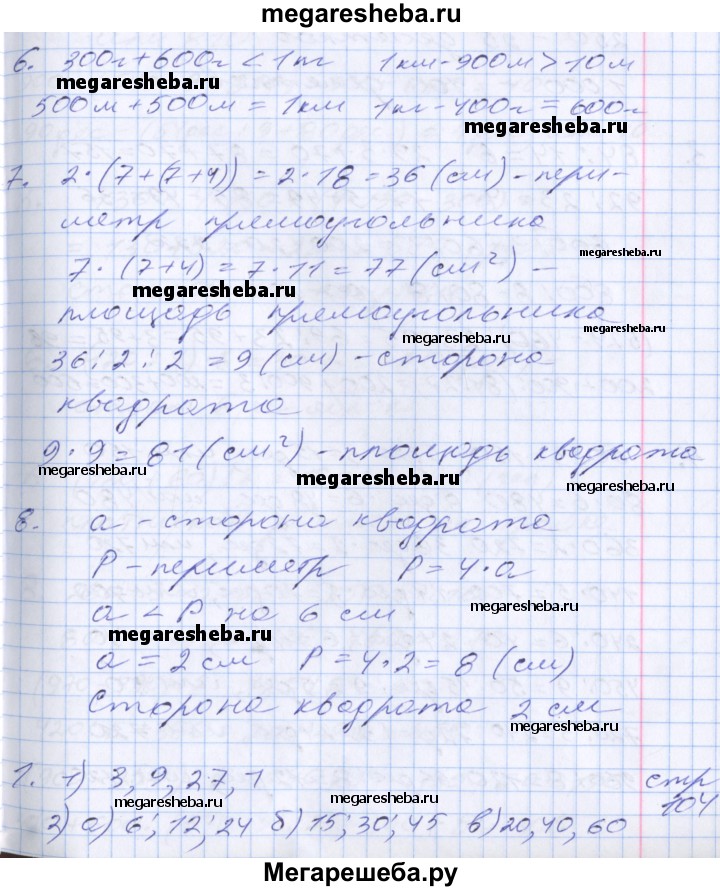 megaresheba.ru
6. 300г+600г < 1кг 1км-900м > 10м
megaresheba.ru
500м+500м = 1км 1кг-400г = 600г
megaresheba.ru
7. 2·(7+(7+4)) = 2·18 = 36 (см) - пери-
метр прямоугольника
megaresheba.ru
7·(7+4) = 7·11 = 77 (см²) –
megaresheba.ru
площадь прямоугольника
megaresheba.ru
36:2:2 = 9 (см) - сторона
квадрата
9·9 = 81 (см²) - площадь квадрата
megaresheba.ru
megaresheba.ru
megaresheba.ru
8. a - сторона квадрата
P - периметр P = 4·a
a < P на 6 см
megaresheba.ru
megaresheba.ru
a = 2 см P = 4·2 = 8 (см)
Сторона квадрата 2 см
megaresheba.ru
1. 1) 3, 9, 27, 1 стр
megaresheba.ru
megaresheba.ru
104
2) а) 6; 12; 24 б) 15; 30; 45 в) 20, 40, 60
megaresheba.ru
Мегарешеба.ру